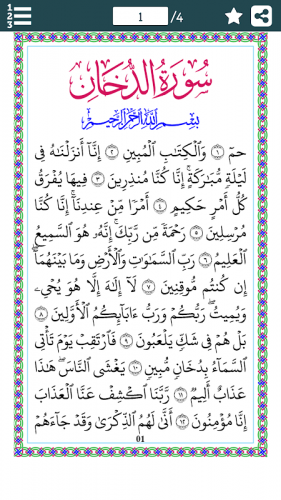 1 2 3
1 /4
سُورَةُ الدُّخَان
بِسْمِ اللَّهِ الرَّحْمَٰنِ الرَّحِيمِ
حمٓ ١ وَٱلْكِتَٰبِ ٱلْمُبِينِ ٢ إِنَّآ أَنزَلْنَٰهُ فِى
لَيْلَةٍ مُّبَٰرَكَةٍ ۚ إِنَّا كُنَّا مُنذِرِينَ ٣ فِيهَا يُفْرَقُ
كُلُّ أَمْرٍ حَكِيمٍ ٤ أَمْرًا مِّنْ عِندِنَآ ۚ إِنَّا كُنَّا
مُرْسِلِينَ ٥ رَحْمَةً مِّن رَّبِّكَ ۚ إِنَّهُۥ هُوَ ٱلسَّمِيعُ
ٱلْعَلِيمُ ٦ رَبِّ ٱلسَّمَٰوَٰتِ وَٱلْأَرْضِ وَمَا بَيْنَهُمَآ ۖ
إِن كُنتُم مُّوقِنِينَ ٧ لَآ إِلَٰهَ إِلَّا هُوَ يُحْىِۦ
وَيُمِيتُ ۖ رَبُّكُمْ وَرَبُّ ءَابَآئِكُمُ ٱلْأَوَّلِينَ ٨
بَلْ هُمْ فِى شَكٍّ يَلْعَبُونَ ٩ فَٱرْتَقِبْ يَوْمَ تَأْتِى
ٱلسَّمَآءُ بِدُخَانٍ مُّبِينٍ ١٠ يَغْشَى ٱلنَّاسَ ۖ هَٰذَا
عَذَابٌ أَلِيمٌ ١١ رَّبَّنَا ٱكْشِفْ عَنَّا ٱلْعَذَابَ
إِنَّا مُؤْمِنُونَ ١٢ أَنَّىٰ لَهُمُ ٱلذِّكْرَىٰ وَقَدْ جَآءَهُمْ
01